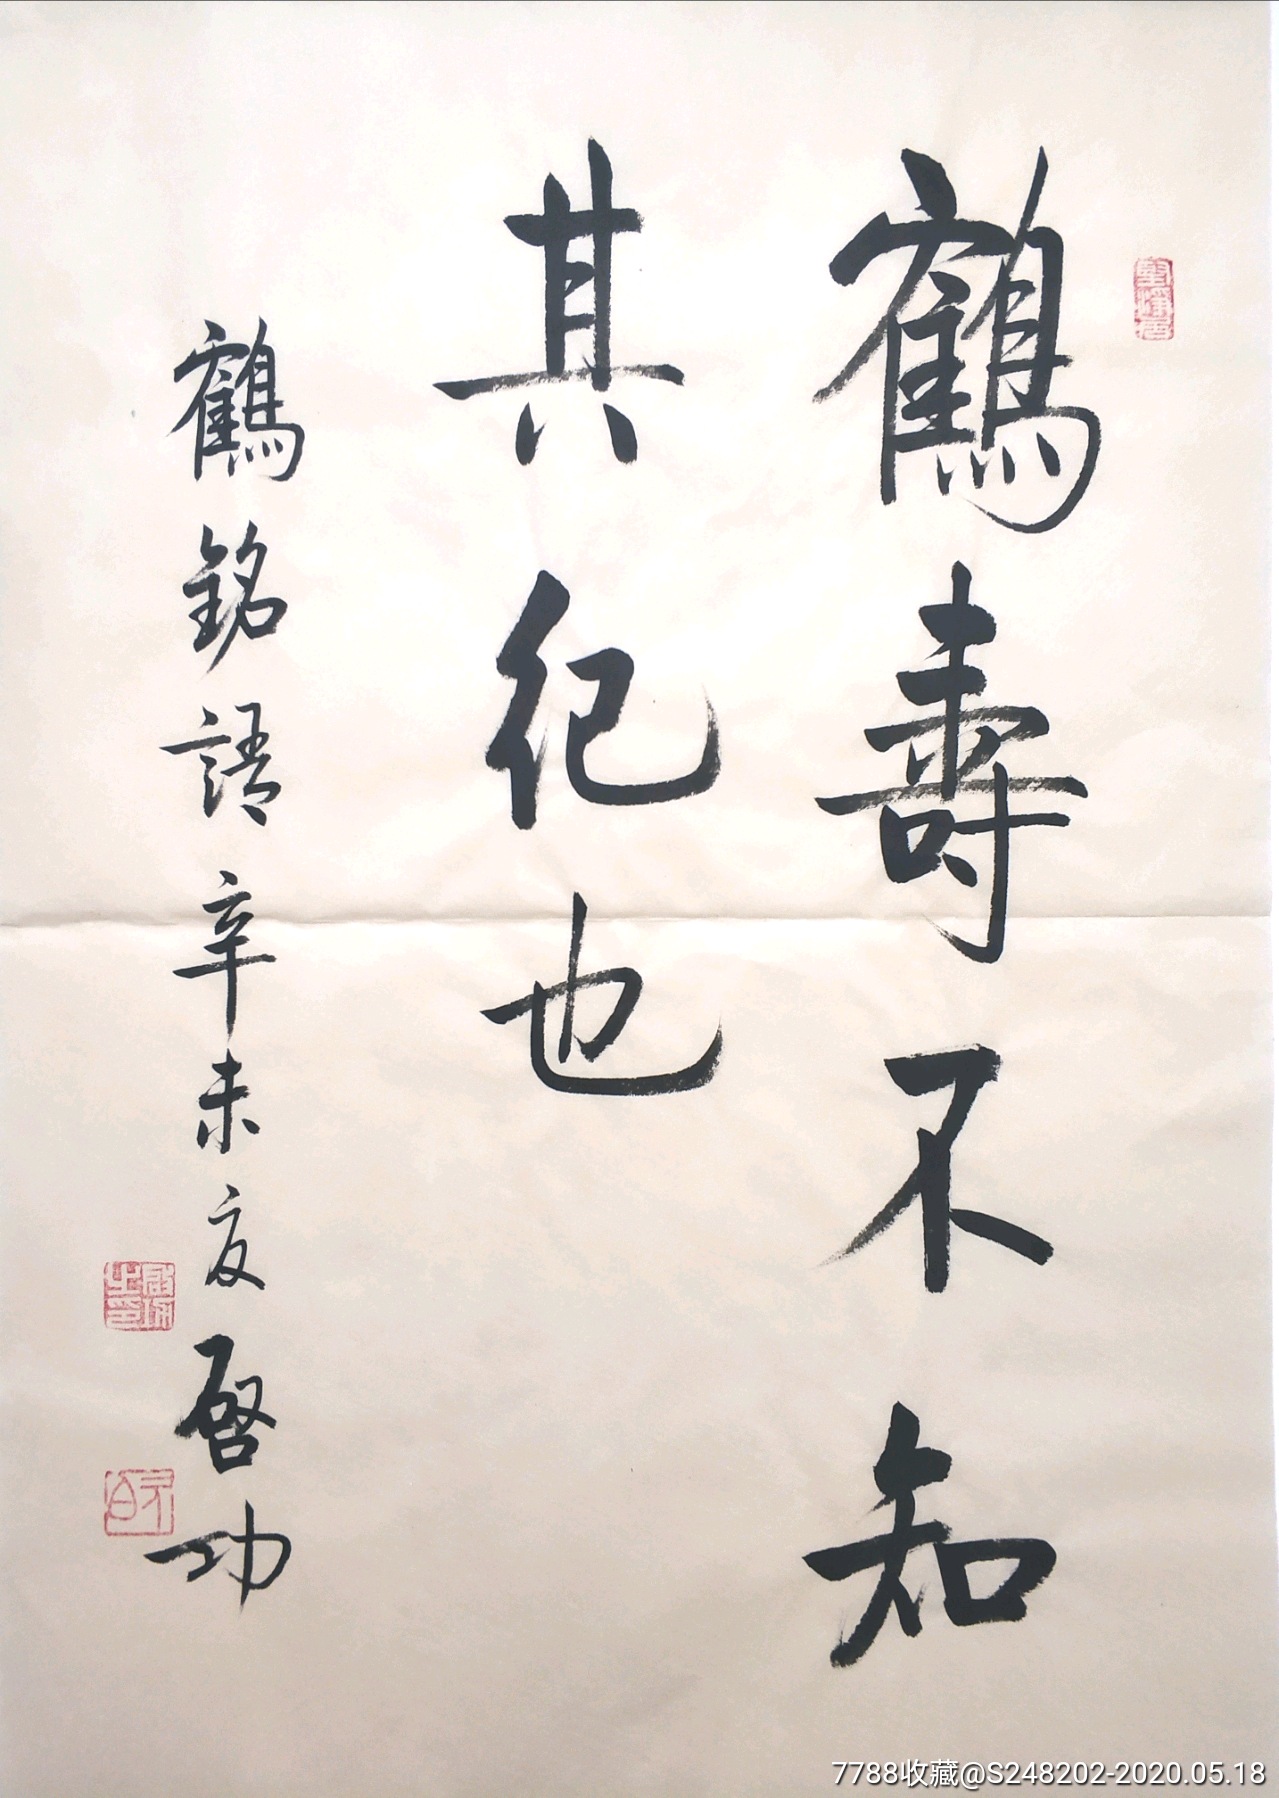 鶴壽不知
其紀也
鶴銘語辛未夏啓功
堅淨居
啟功之印
元白
7788收藏@S248202-2020.05.18